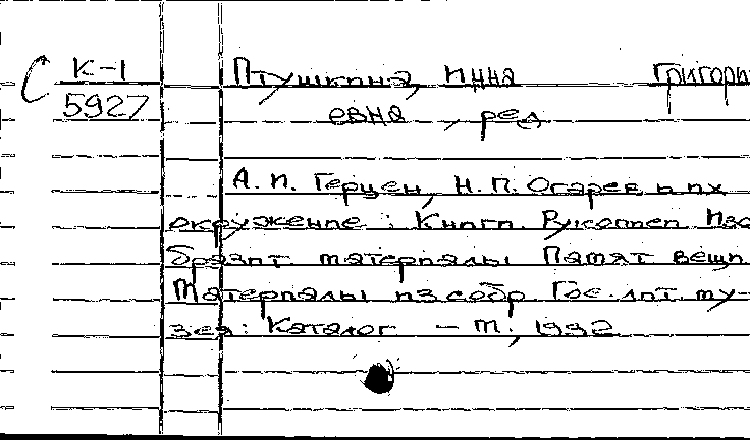 С К-1 Птушкина, Инна Григори
5927 евна, ред
А. И. Герцен, Н. П. Огарев и их
окружение : Книги. Рукописи Изо
бразит материалы Памят вещи
Материалы из собр Гос. лит. му-
зея: Каталог – М., 1992